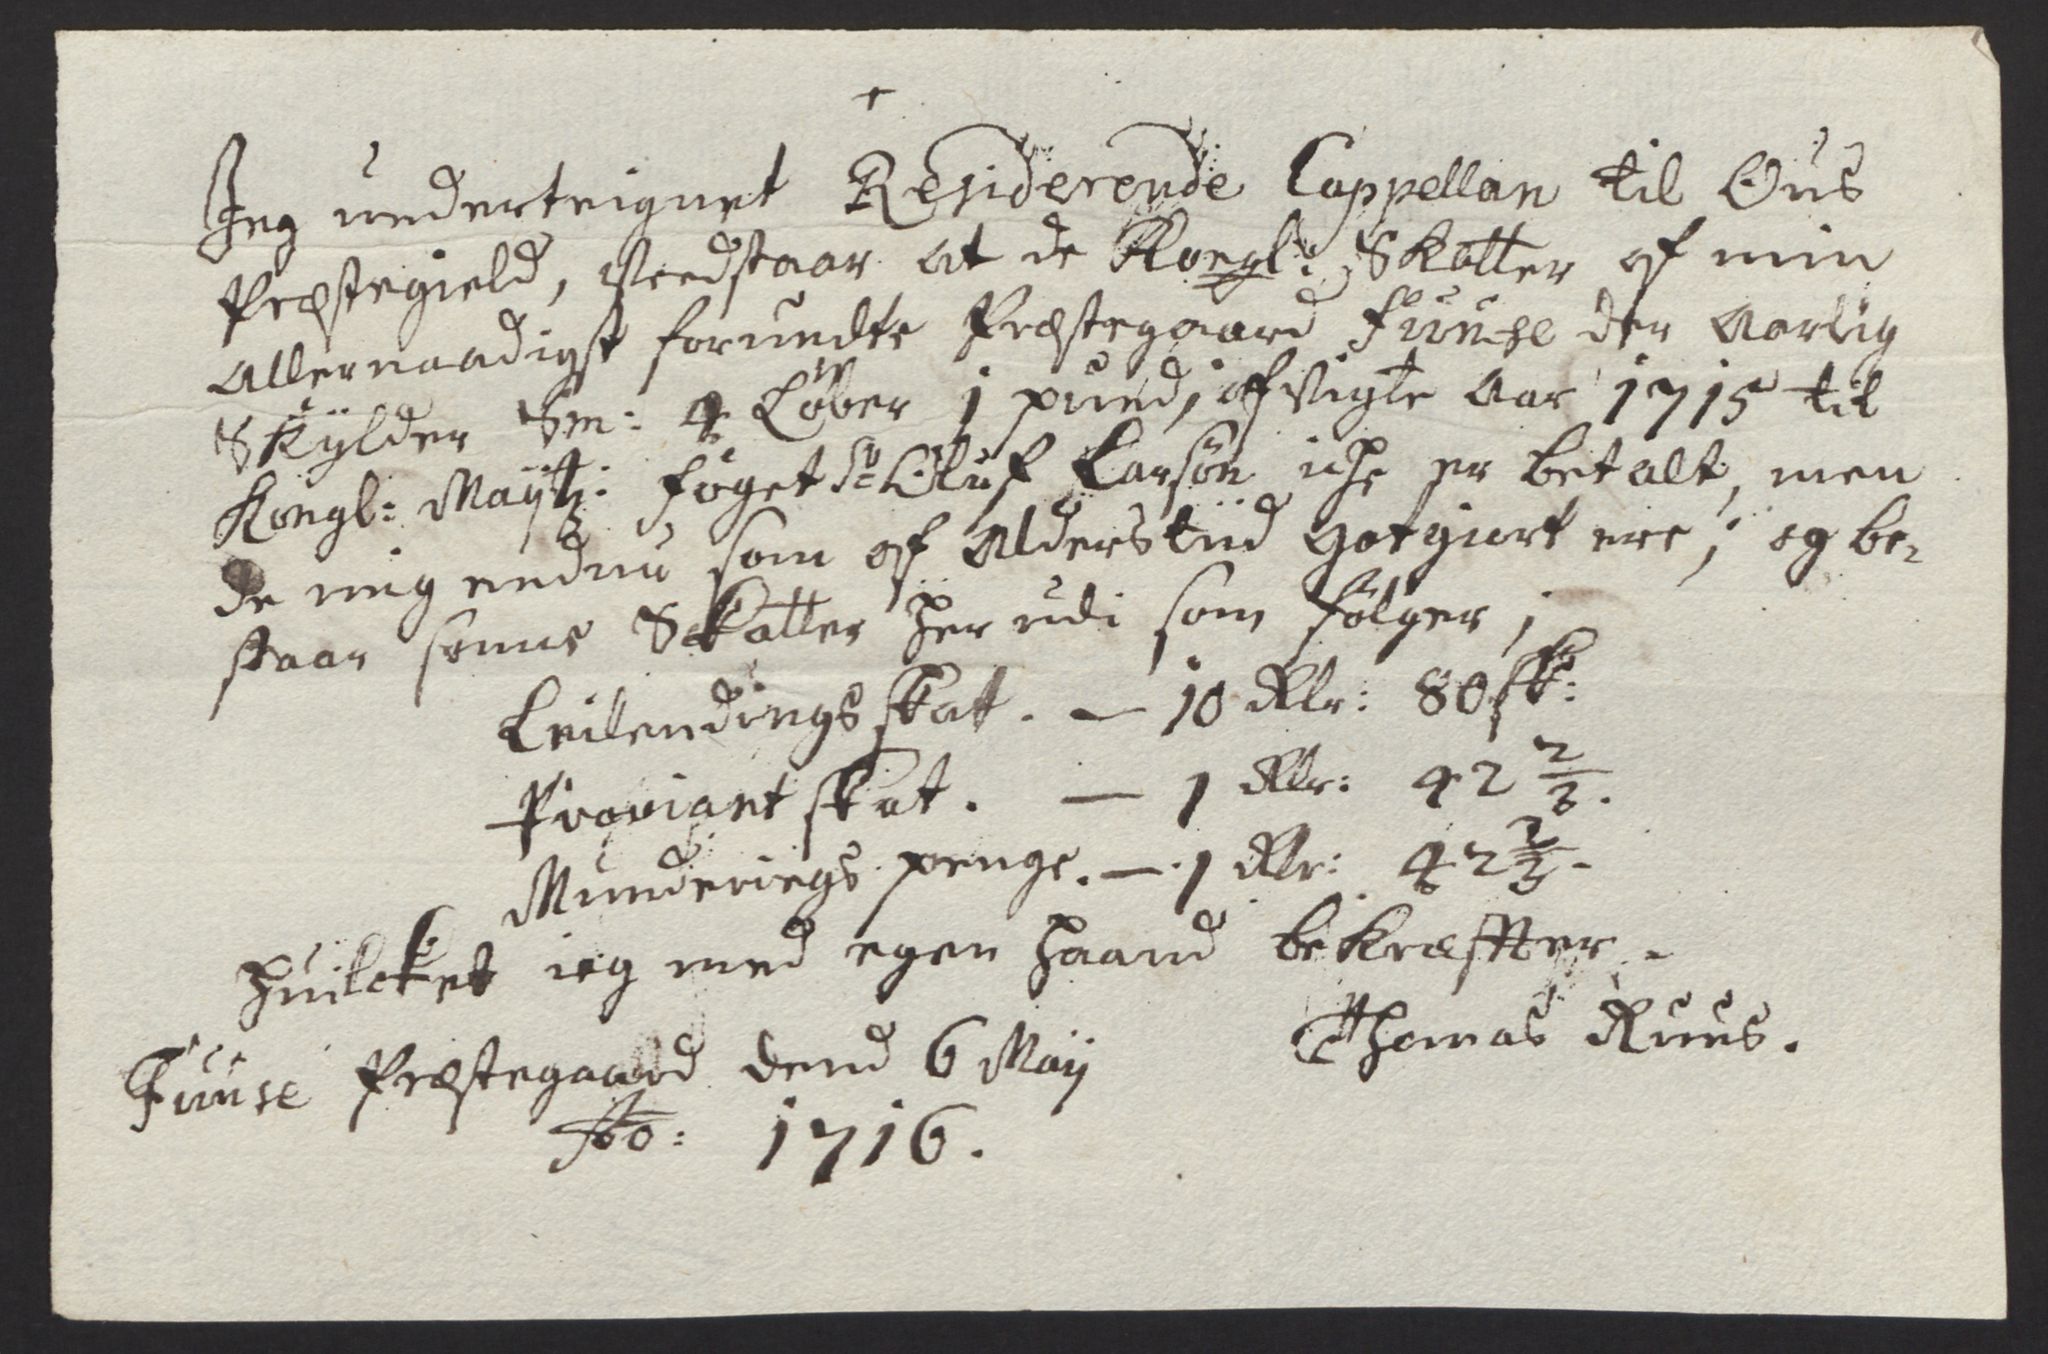 Jeg underteignet Residerende Cappellan til Ous
Præstegield, Vedstaar at de Kongl: Skatter af min
allernaadigst forundte Præstegaard Fuuse der Aarlig
Skÿlder Sm: 4 Løber 1 pund, af vigte Aar 1715 til
Kongl: Maÿtz: foget Sr Oluf Larsøn iche er betalt, men
de mig endnu som af Alders tiid got giort ere, og be-
staar samme Skatter her udi som følger,
Leilendings skat. — 10 Rlr: 80 sk:
Proviant skat. — 1 Rlr: 42 2/3.
Munderings penge. — 1 Rlr: 42 2/3 -
huilcket ieg med egen haand bekræffter.
Thomas Ruus.
Fuuse Præstegaard dend 6 Maÿ
Ao: 1716.